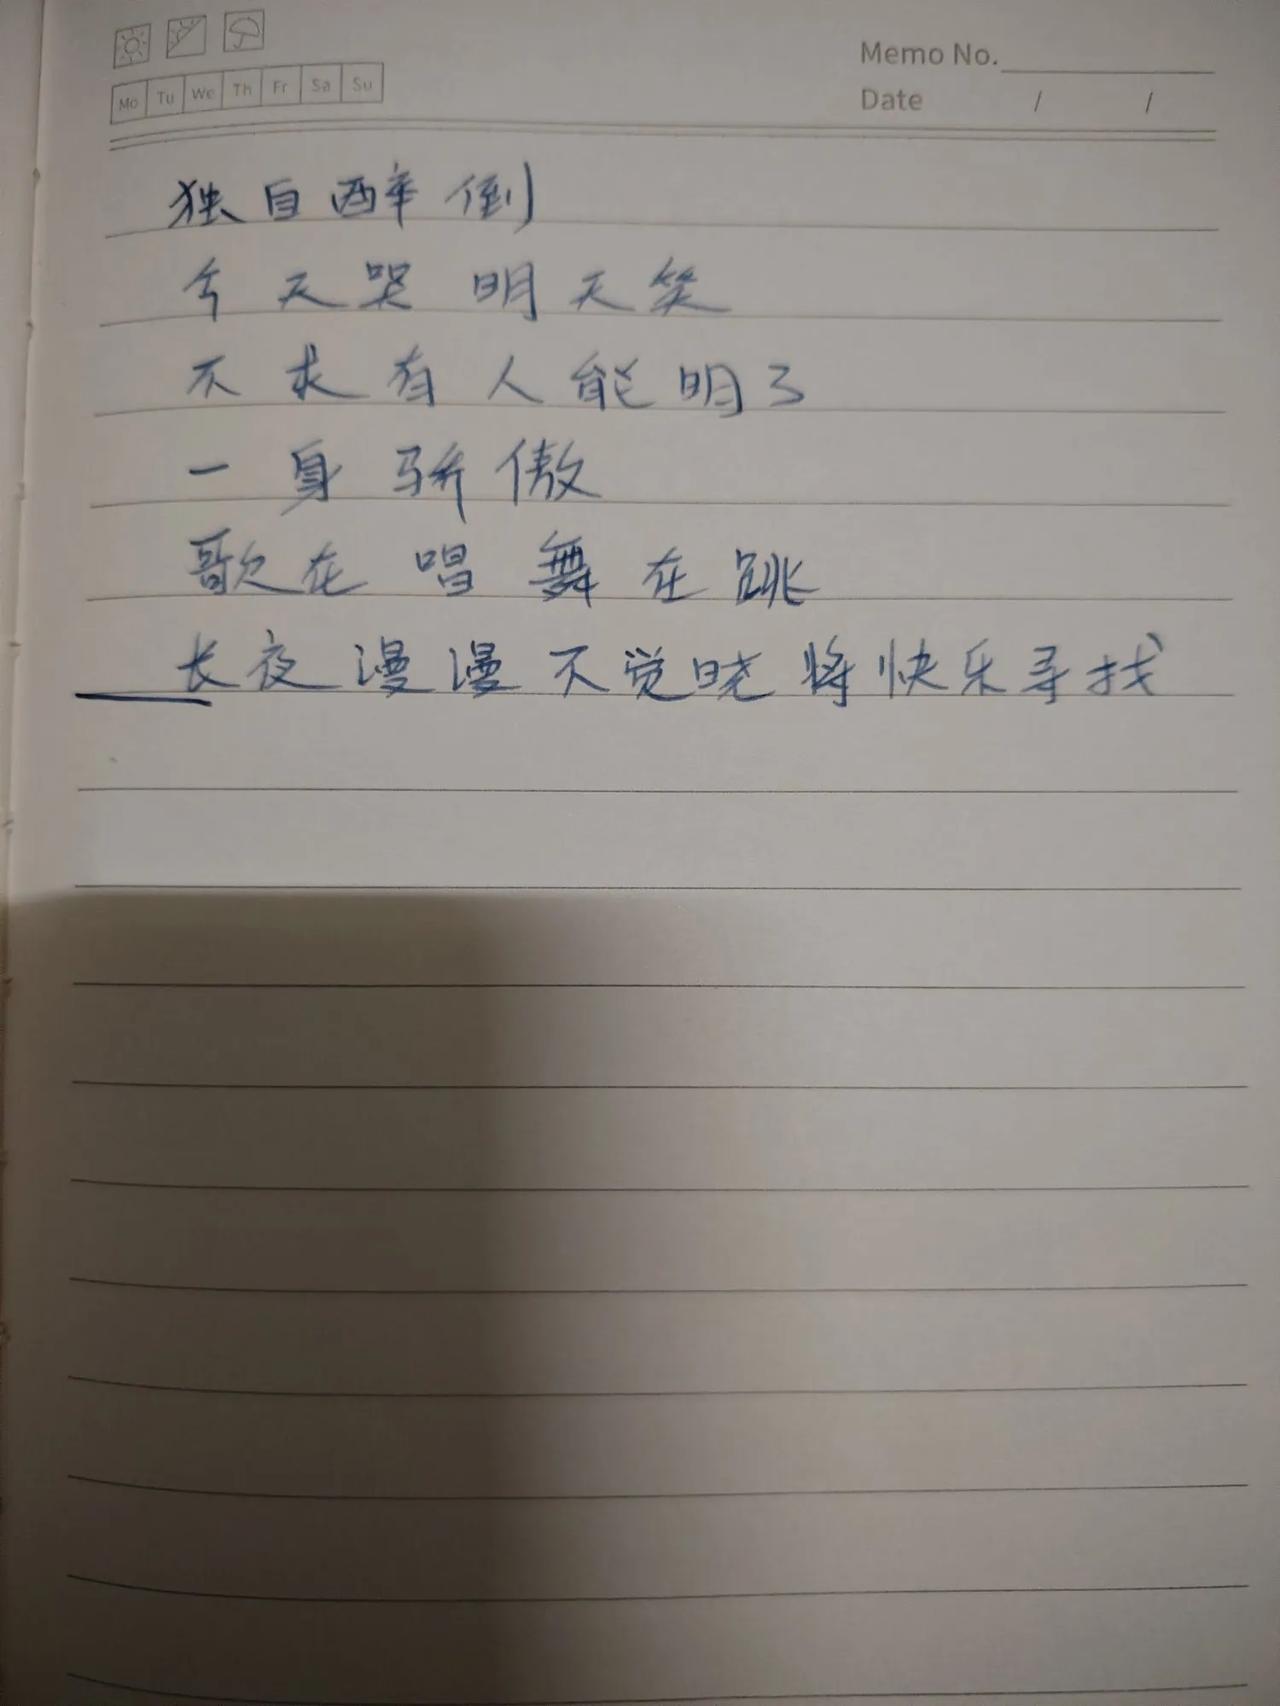 Memo No.
Mo Tu We Th Fr Sa Su
Date / /
独自醉倒
今天哭 明天笑
不求有人能明了
一身骄傲
歌在唱 舞在跳
长夜漫漫不觉晓将快乐寻找